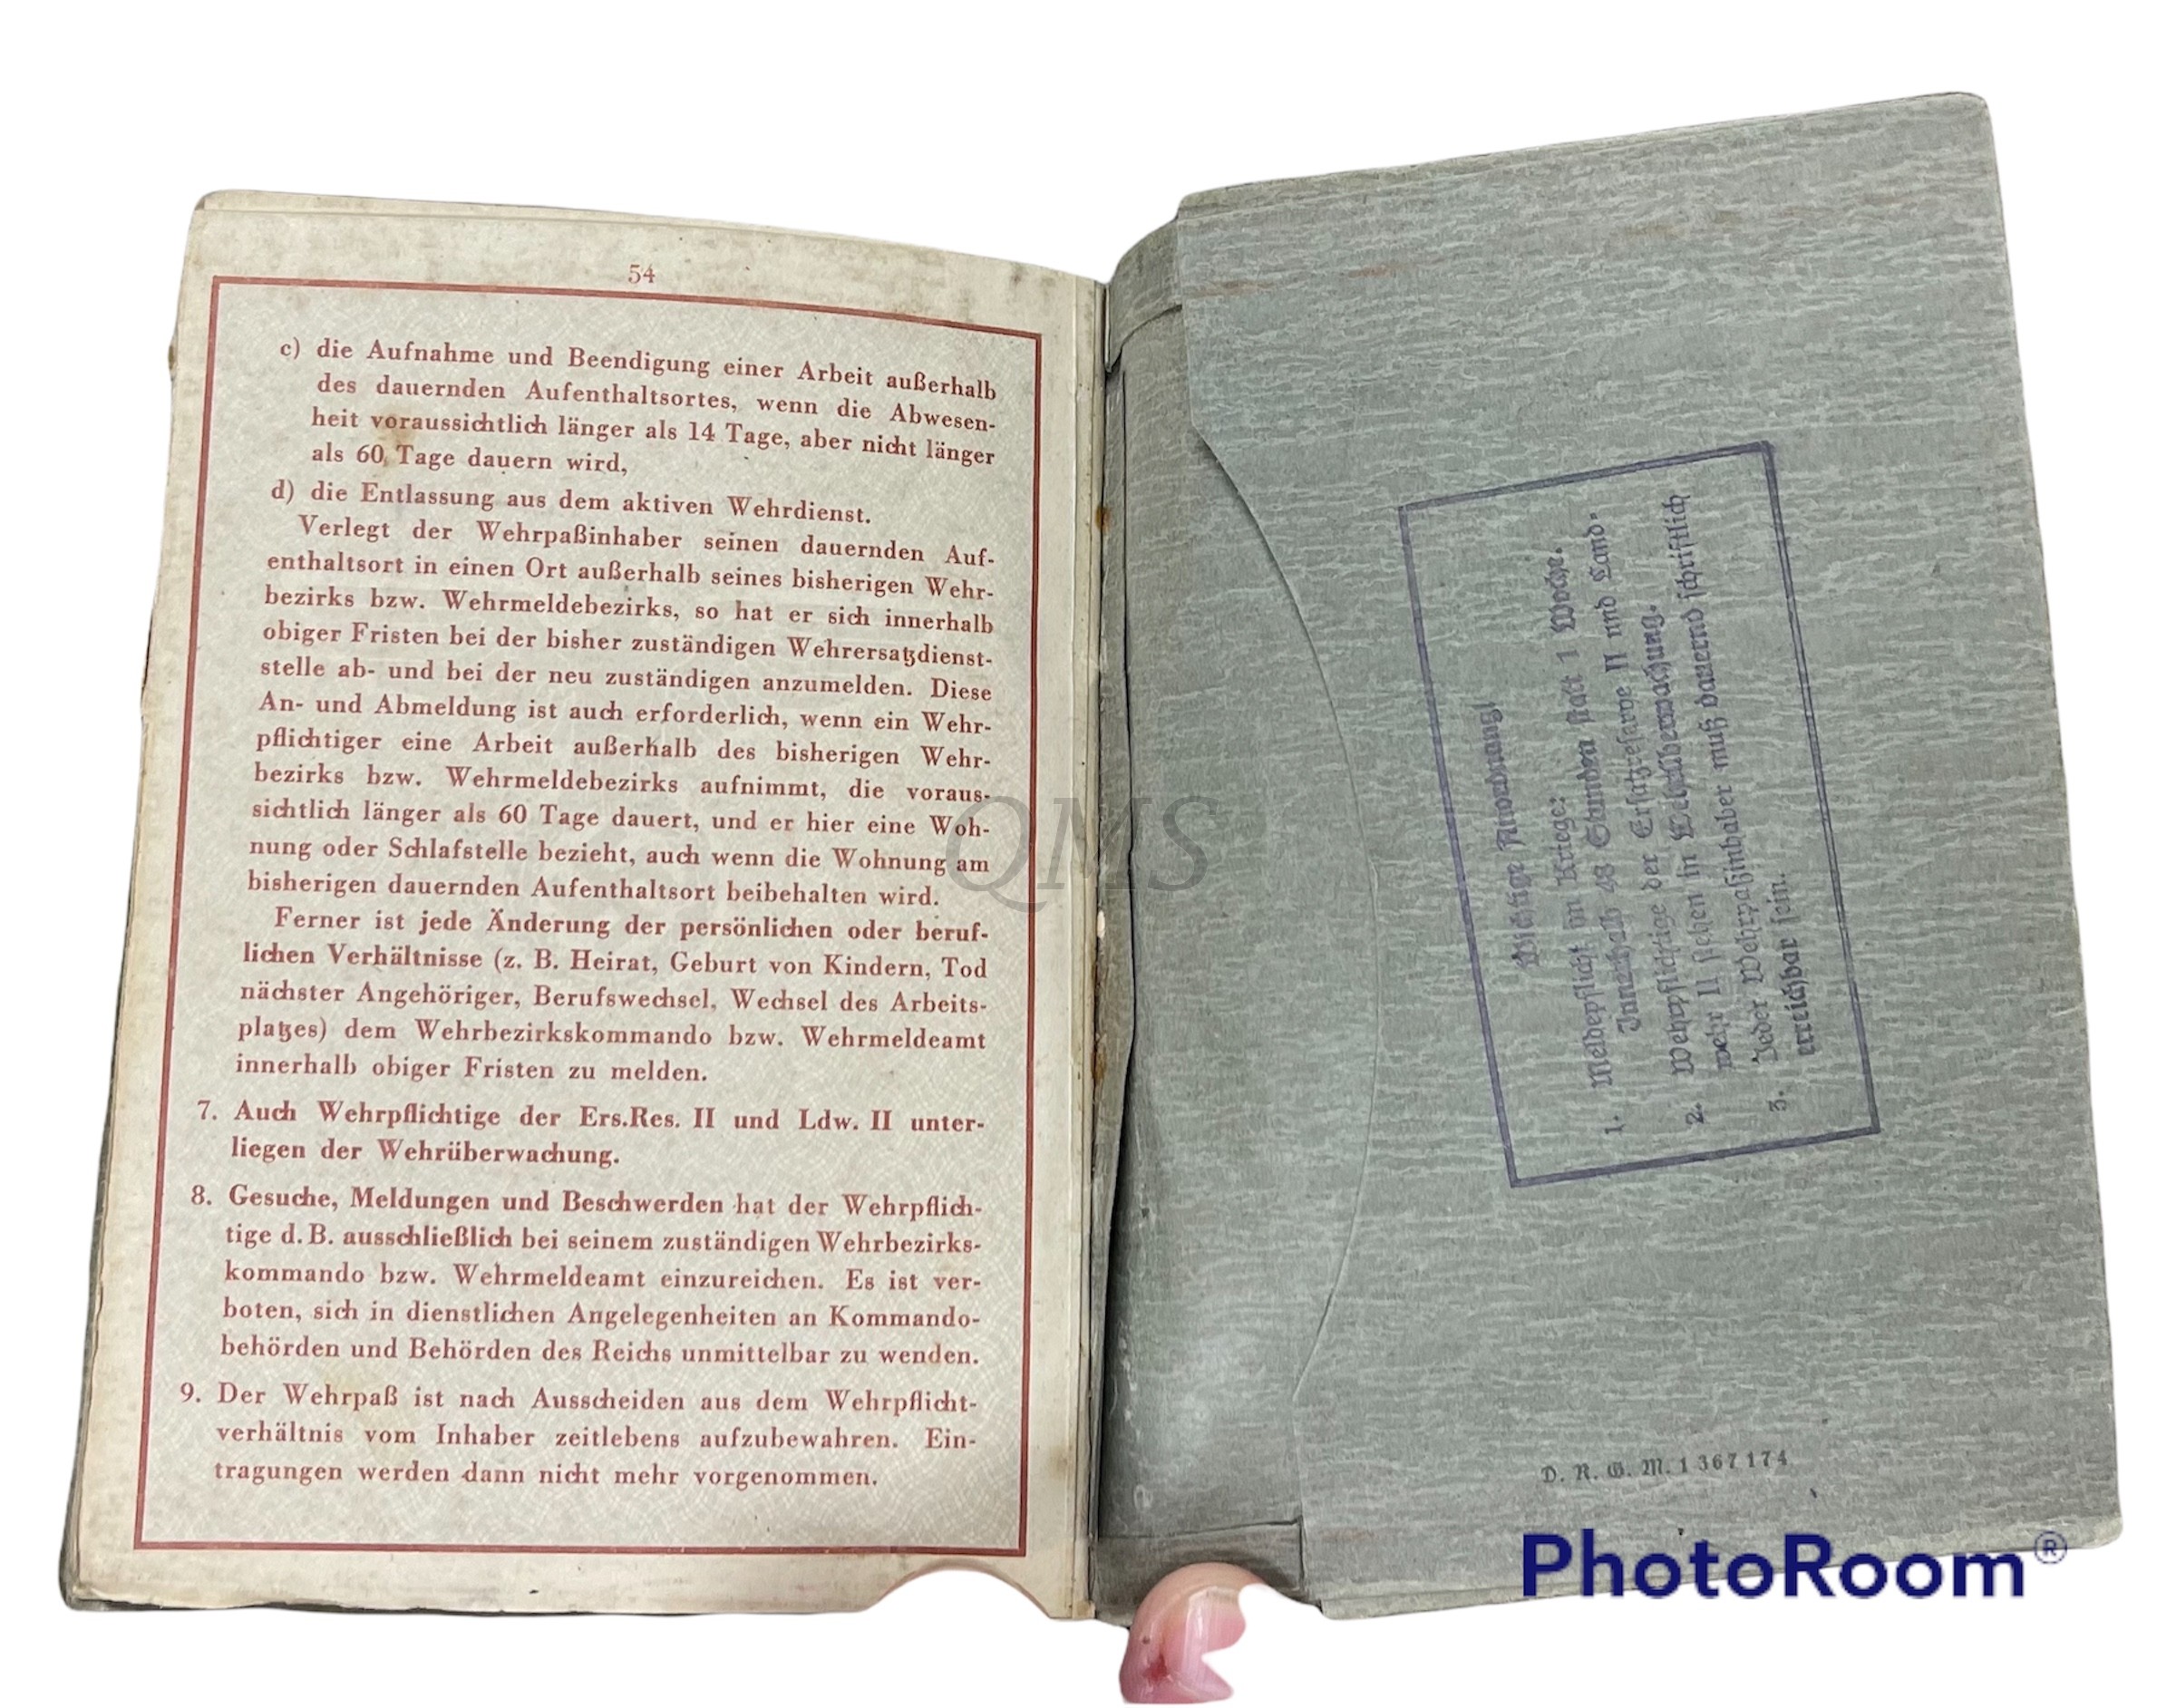 54
c) die Aufnahme und Beendigung einer Arbeit außerhalb
des dauernden Aufenthaltsortes, wenn die Abwesen-
heit voraussichtlich länger als 14 Tage, aber nicht länger
als 60 Tage dauern wird,
d) die Entlassung aus dem aktiven Wehrdienst.
Verlegt der Wehrpaßinhaber seinen dauernden Auf-
enthaltsort in einen Ort außerhalb seines bisherigen Wehr-
bezirks bzw. Wehrmeldebezirks, so hat er sich innerhalb
obiger Fristen bei der bisher zuständigen Wehrersatzdienst-
stelle ab- und bei der neu zuständigen anzumelden. Diese
An- und Abmeldung ist auch erforderlich, wenn ein Wehr-
pflichtiger eine Arbeit außerhalb des bisherigen Wehr-
bezirks bzw. Wehrmeldebezirks aufnimmt, die voraus-
sichtlich länger als 60 Tage dauert, und er hier eine Woh-
nung oder Schlafstelle bezieht, auch wenn die Wohnung am
bisherigen dauernden Aufenthaltsort beibehalten wird.
Ferner ist jede Änderung der persönlichen oder beruf-
lichen Verhältnisse (z. B. Heirat, Geburt von Kindern, Tod
nächster Angehöriger, Berufswechsel, Wechsel des Arbeits-
platzes) dem Wehrbezirkskommando bzw. Wehrmeldeamt
innerhalb obiger Fristen zu melden.
7. Auch Wehrpflichtige der Ers.Res. II und Ldw. II unter-
liegen der Wehrüberwachung.
8. Gesuche, Meldungen und Beschwerden hat der Wehrpflich-
tige d. B. ausschließlich bei seinem zuständigen Wehrbezirks-
kommando bzw. Wehrmeldeamt einzureichen. Es ist ver-
boten, sich in dienstlichen Angelegenheiten an Kommando-
behörden und Behörden des Reichs unmittelbar zu wenden.
9. Der Wehrpaß ist nach Ausscheiden aus dem Wehrpflicht-
verhältnis vom Inhaber zeitlebens aufzubewahren. Ein-
tragungen werden dann nicht mehr vorgenommen.
Wichtige Anordnung!
1. Meldepflicht im Kriege:
Innerhalb 48 Stunden statt 1 Woche.
2. Wehrpflichtige der Ersatzreserve II und Land-
wehr II stehen in Wehrüberwachung.
3. Jeder Wehrpaßinhaber muß dauernd schriftlich
erreichbar sein.
D. R. G. M. 1 367 174
QMS
PhotoRoom®